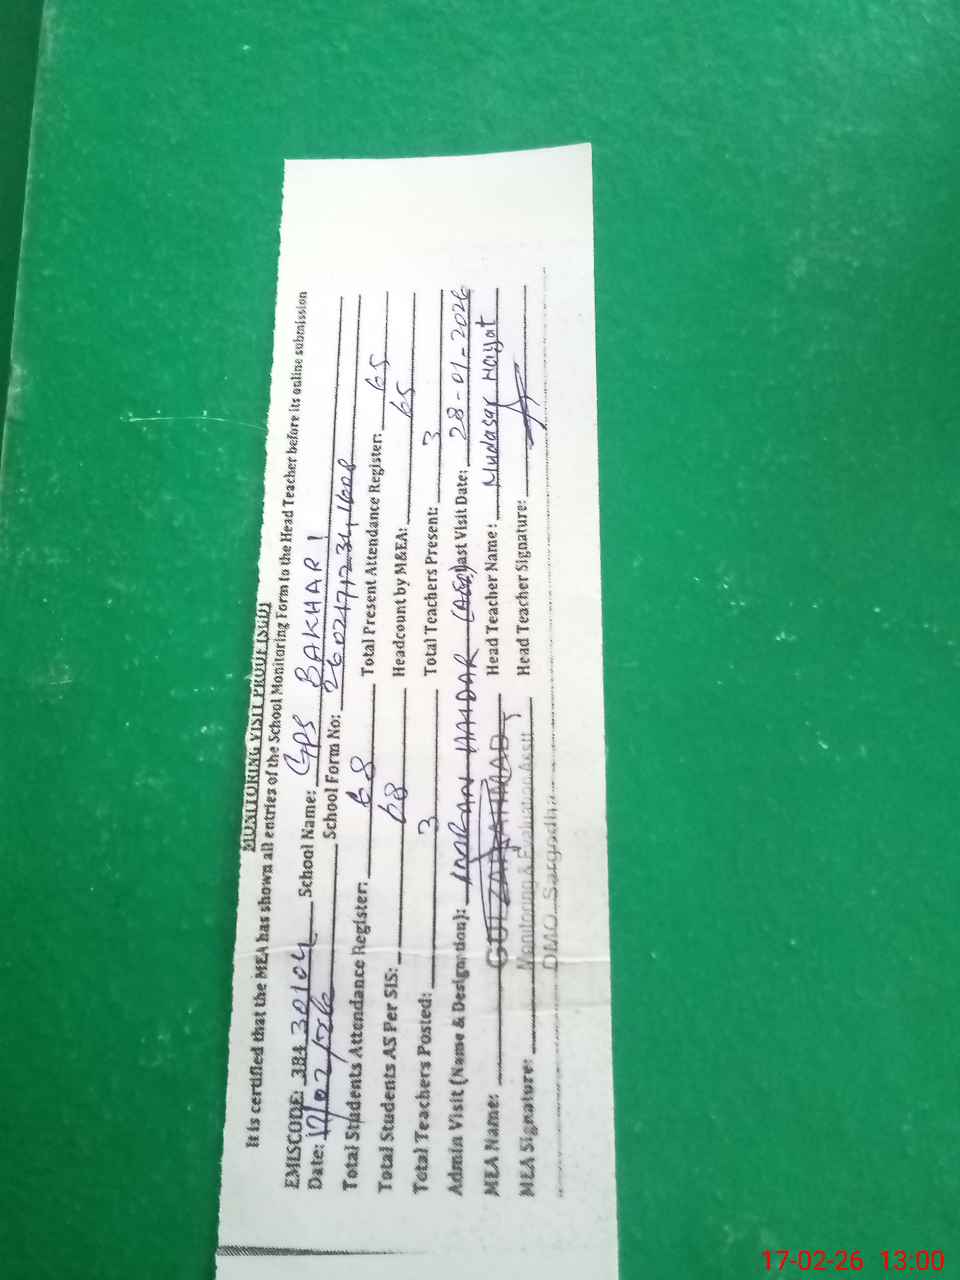 MONITORING VISIT PROOF (SED)
It is certified that the MEA has shown all entries of the School Monitoring Form to the Head Teacher before its online submission
EMISCODE: 38430104 School Name: GPS BAKHARI
Date: 17/02/26 School Form No:
Total Students Attendance Register: 68 Total Present Attendance Register: 65
Total Students AS Per SIS: 68 Headcount by M&EA: 65
Total Teachers Posted: 3 Total Teachers Present: 3
Admin Visit (Name & Designation): IMRAN HAIDAR (AEO) Last Visit Date: 28-01-2026
MEA Name: GULZAR AHMAD Head Teacher Name: Mudasar Hayat
MEA Signature: Monitoring & Evaluation Asstt Head Teacher Signature:
DMO Sargodha
17-02-26 13:00